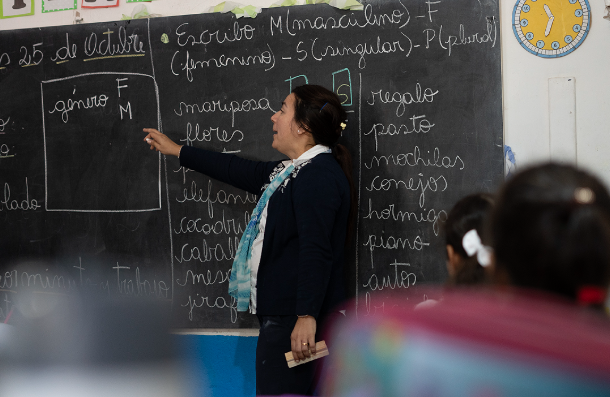 s 25 de Octubre
Escribo M(masculino)-F
(femenino)-S(singular)-P(plural)
género F
M
mariposa
S
flores
elefant
cocodri
caball
mes
jiraf
regalo
pasto
mochilas
conejos
hormiga
piano-
autos
lado